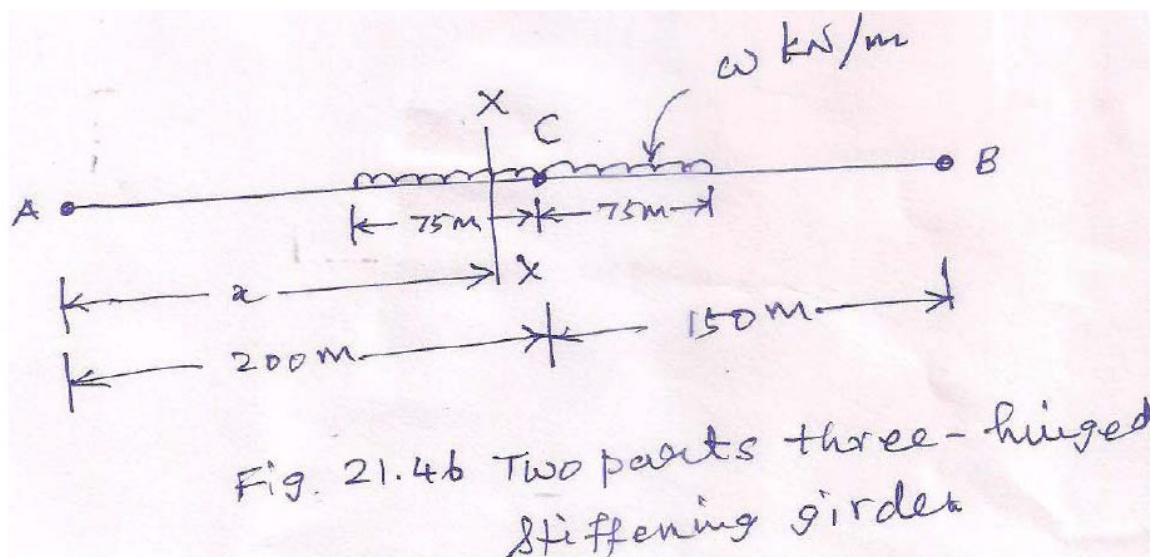 ω kN/m
X
C
A
B
75m
75m
X
x
200m
150m
Fig. 21.4b Two parts three-hinged
stiffening girder